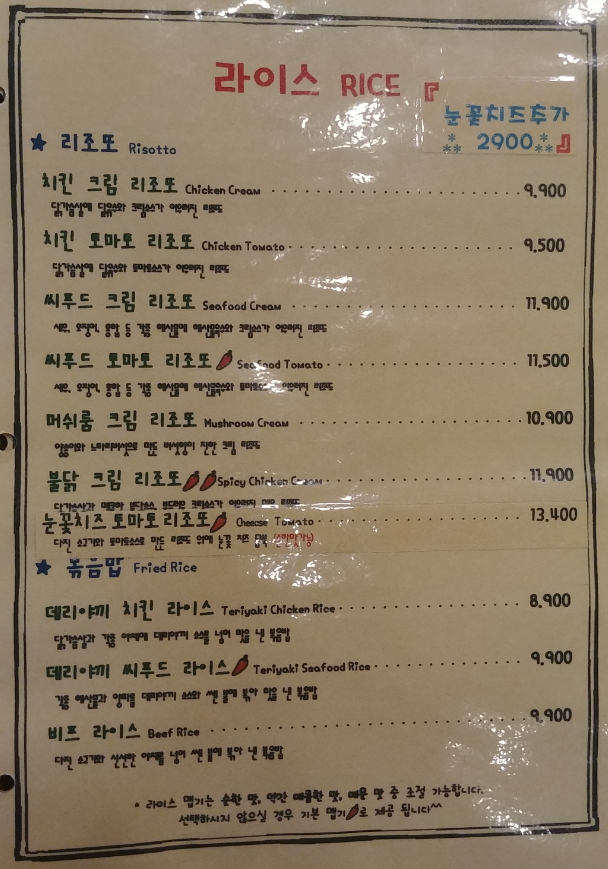 라이스 RICE
『눈꽃치즈추가
** 2900 **』
★ 리조또 Risotto
치킨 크림 리조또 Chicken Cream 9,900
닭가슴살에 닭육수와 크림소스가 어우러진 리조또
치킨 토마토 리조또 Chicken Tomato 9,500
닭가슴살에 닭육수와 토마토소스가 어우러진 리조또
씨푸드 크림 리조또 Seafood Cream 11,900
새우, 오징어, 홍합 등 각종 해산물에 해산물육수와 크림소스가 어우러진 리조또
씨푸드 토마토 리조또 Seafood Tomato 11,500
새우, 오징어, 홍합 등 각종 해산물에 해산물육수와 토마토소스가 어우러진 리조또
머쉬룸 크림 리조또 Mushroom Cream 10,900
양송이와 느타리버섯으로 만든 버섯향이 진한 크림 리조또
불닭 크림 리조또 Spicy Chicken Cream 11,900
닭가슴살과 매콤한 불닭소스, 부드러운 크림소스가 어우러진 매운 리조또
눈꽃치즈 토마토리조또 Cheese Tomato 13,400
다진 소고기와 토마토소스로 만든 리조또 위에 눈꽃 치즈 듬뿍
★ 볶음밥 Fried Rice
데리야끼 치킨 라이스 Teriyaki Chicken Rice 8,900
닭가슴살과 각종 야채에 데리야끼 소스를 넣어 맛을 낸 볶음밥
데리야끼 씨푸드 라이스 Teriyaki Seafood Rice 9,900
각종 해산물과 양파를 데리야끼 소스와 쎈 불에 볶아 맛을 낸 볶음밥
비프 라이스 Beef Rice 9,900
다진 소고기와 신선한 야채를 넣어 쎈 불에 볶아 낸 볶음밥
* 라이스 맵기는 순한 맛, 약간 매콤한 맛, 매운 맛 중 조절 가능합니다.
선택하시지 않으실 경우 기본 맵기로 제공 됩니다^^